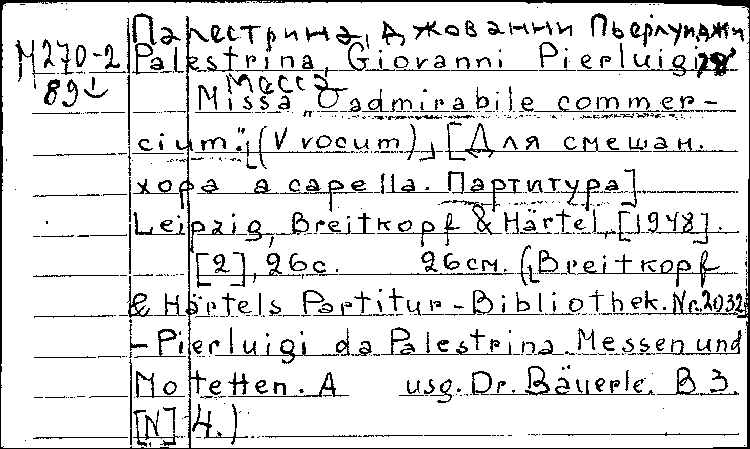 Палестрина, Джованни Пьерлуиджи
М270-2 Palestrina, Giovanni Pierluigi
89↓ Месса
Missa „O admirabile commer-
cium“ (V vocum), [Для смешан.
хора a capella. Партитура]
Leipzig, Breitkopf & Härtel, [1948].
[2], 26с. 26см. (Breitkopf
& Härtels Partitur-Bibliothek. Nr. 2032
– Pierluigi da Palestrina. Messen und
Motetten. A usg. Dr. Bäuerle. B 3.
[N] 4.)